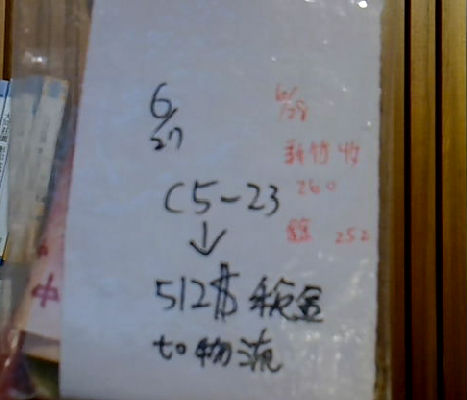 6/27
C5-23
↓
512$ 稅金
to 物流
6/28
新竹收
260
餘 252